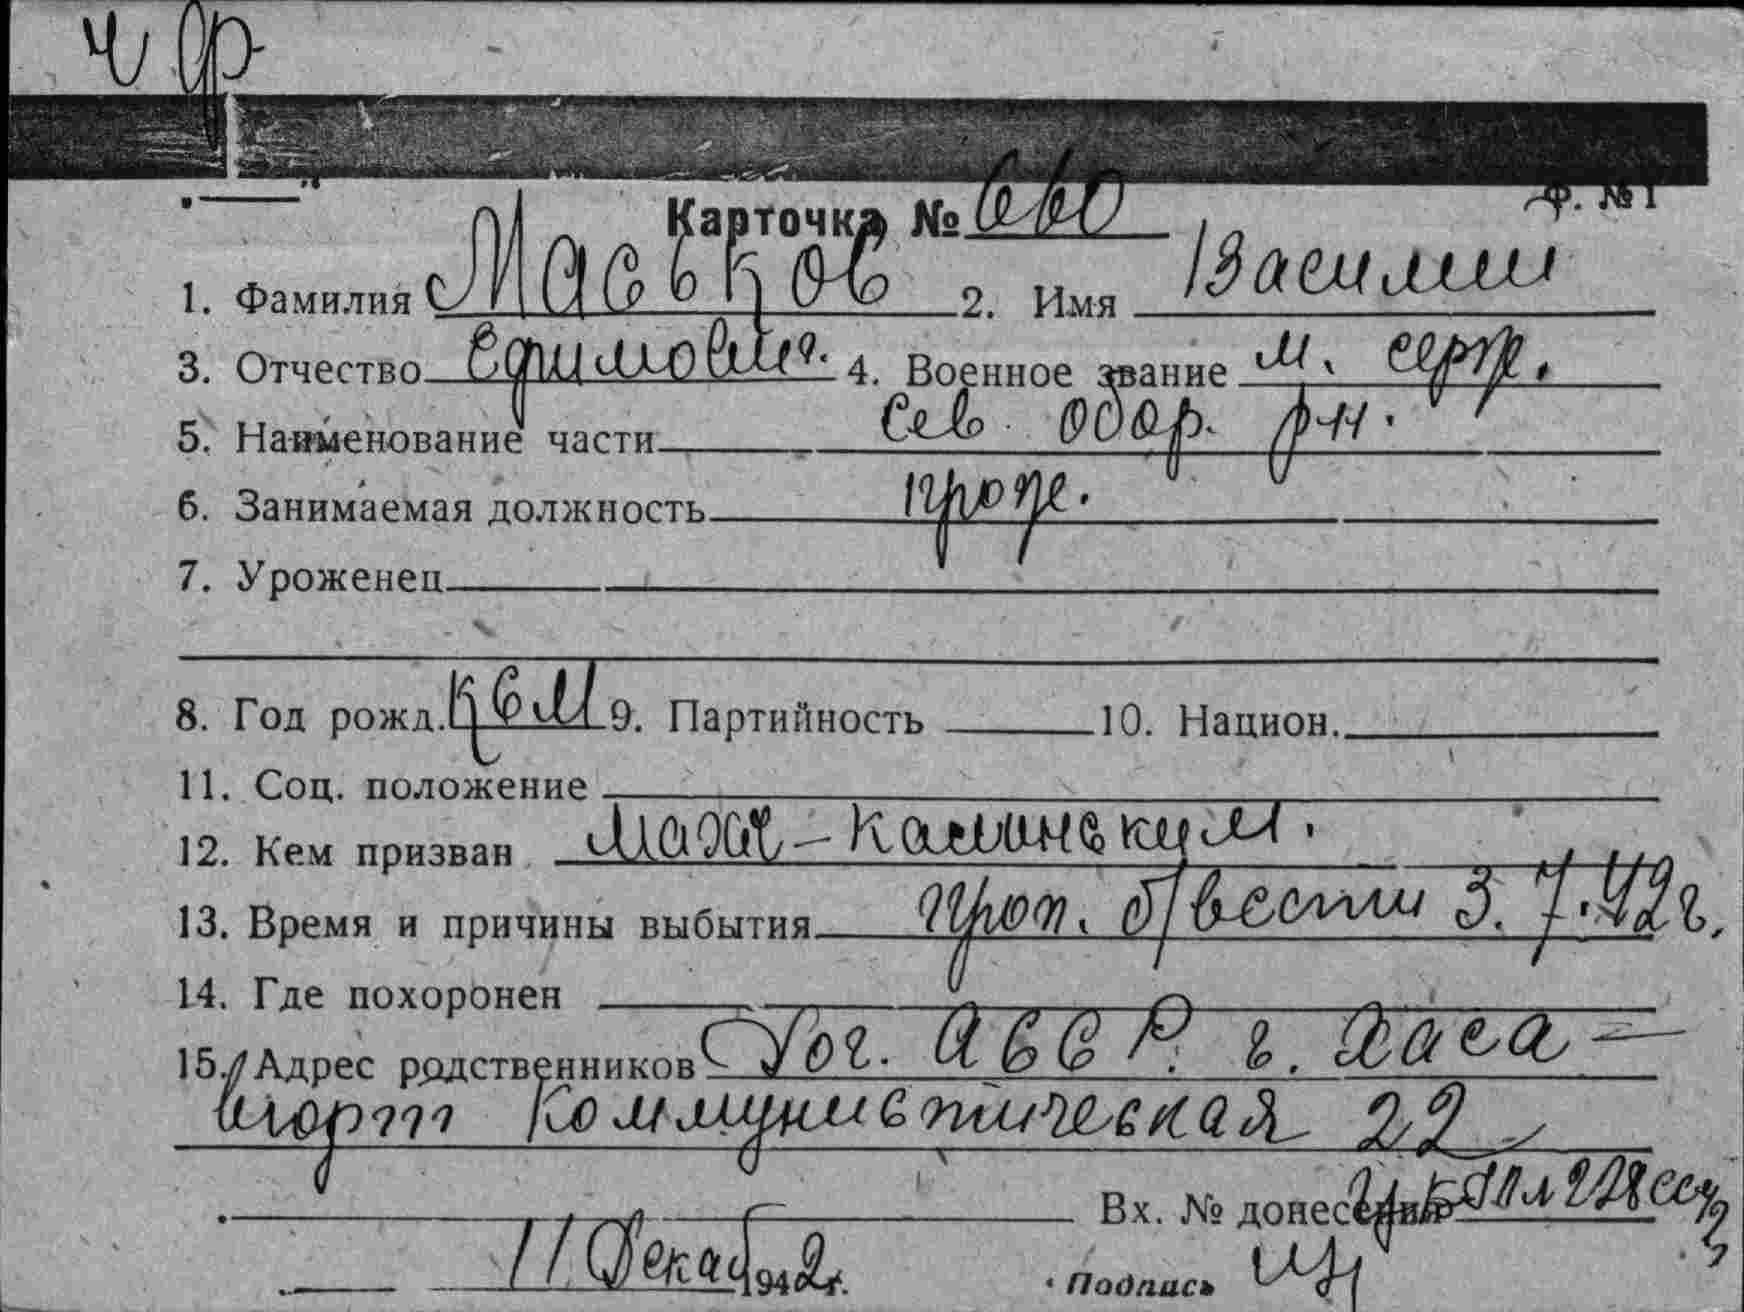 Ф. № 1
Карточка № 660
1. Фамилия Маськов 2. Имя Василии
3. Отчество Ефимович. 4. Военное звание м. серж.
5. Наименование части Сев. обор. р-н.
6. Занимаемая должность
7. Уроженец
8. Год рожд. 9. Партийность 10. Национ.
11. Соц. положение
12. Кем призван Махач-Калинским.
13. Время и причины выбытия проп. б/вести 3.7.42 г.
14. Где похоронен
15. Адрес родственников Даг. АССР. г. Хаса-
вюрт Коммунистическая 22
Вх. № донесения
11 Декаб 1942 г. Подпись